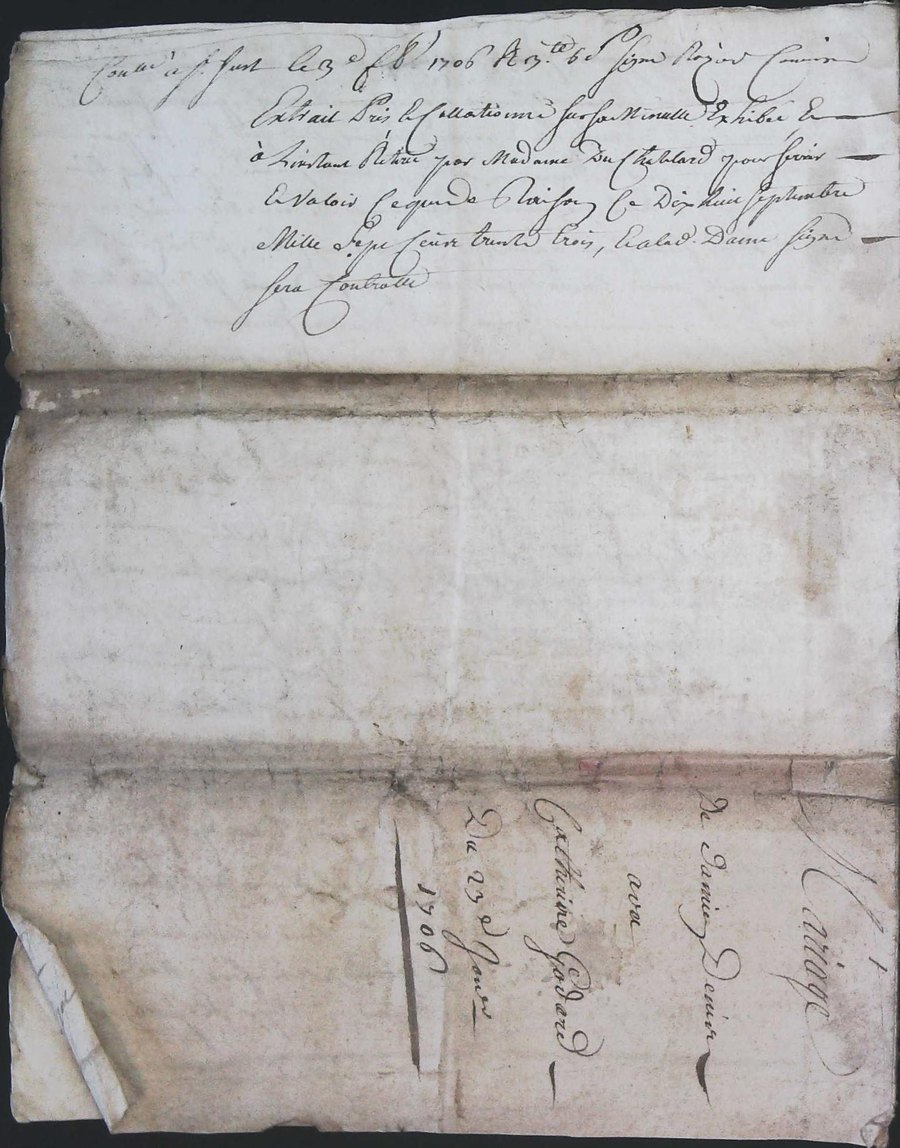 Con.lé à St Just le 3e fbr 1706 R 3 tt 6 d signé Commis
Extrait Pris & Collationné sur sa Minutte Exhibée Et
à Linstant Retiré par Madame Du Chatelard pour servir
Et valoir Ce que de Raison, Ce Dix huit septembre
Mille Sept Cents trente trois, Et a lad. Dame Signé
sera Controllé
Mariage
De Damien
avec
Catherine Godard
Du 23e Janer
1706